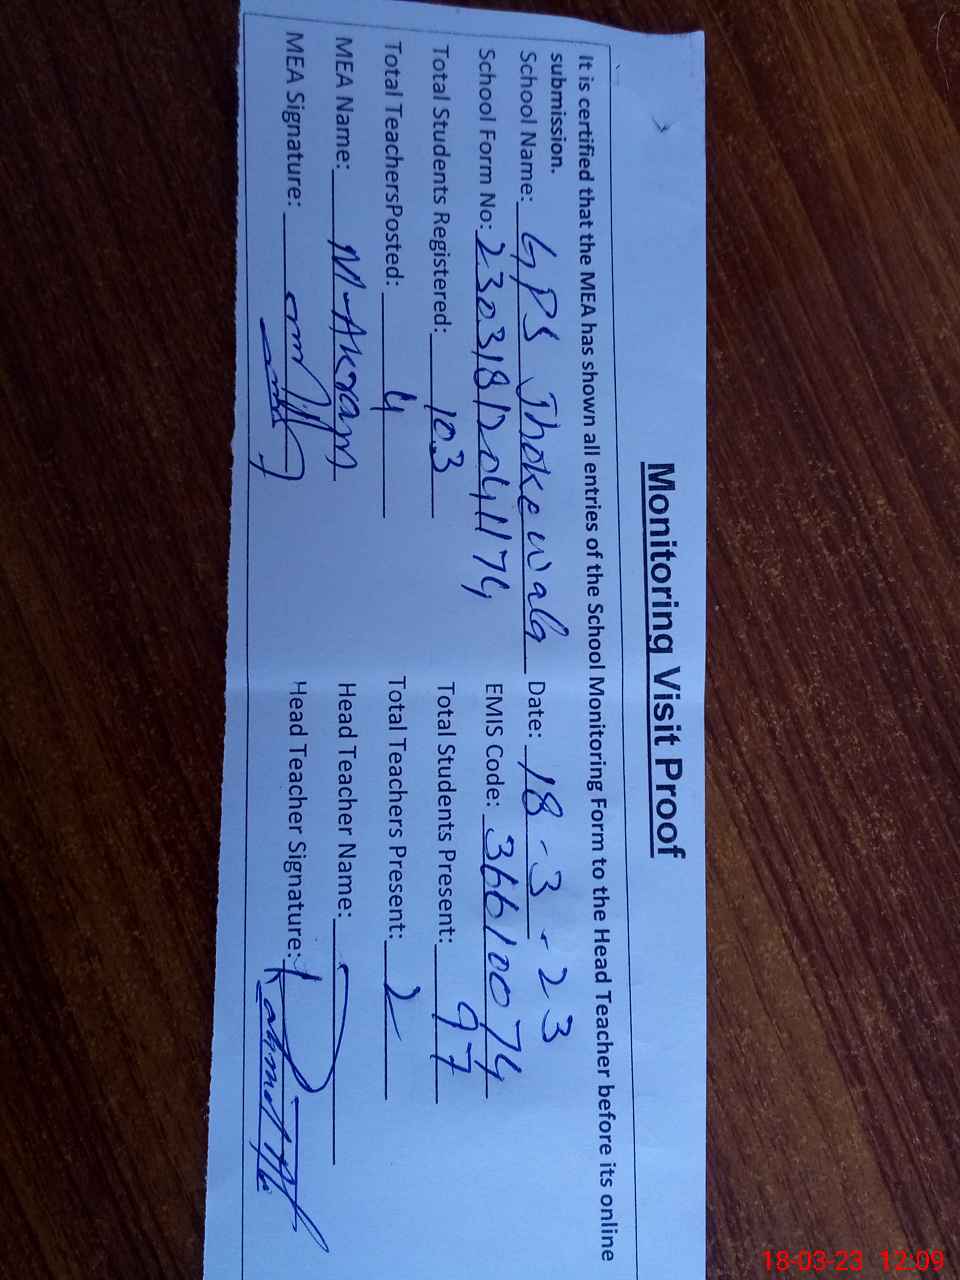 Monitoring Visit Proof
It is certified that the MEA has shown all entries of the School Monitoring Form to the Head Teacher before its online
submission.
School Name: GPS Jhoke wala Date: 18-3-23
School Form No: EMIS Code: 36610074
Total Students Registered: 103 Total Students Present: 97
Total TeachersPosted: 4 Total Teachers Present: 2
MEA Name: M-Akram Head Teacher Name:
MEA Signature: Head Teacher Signature:
18-03-23 12:09